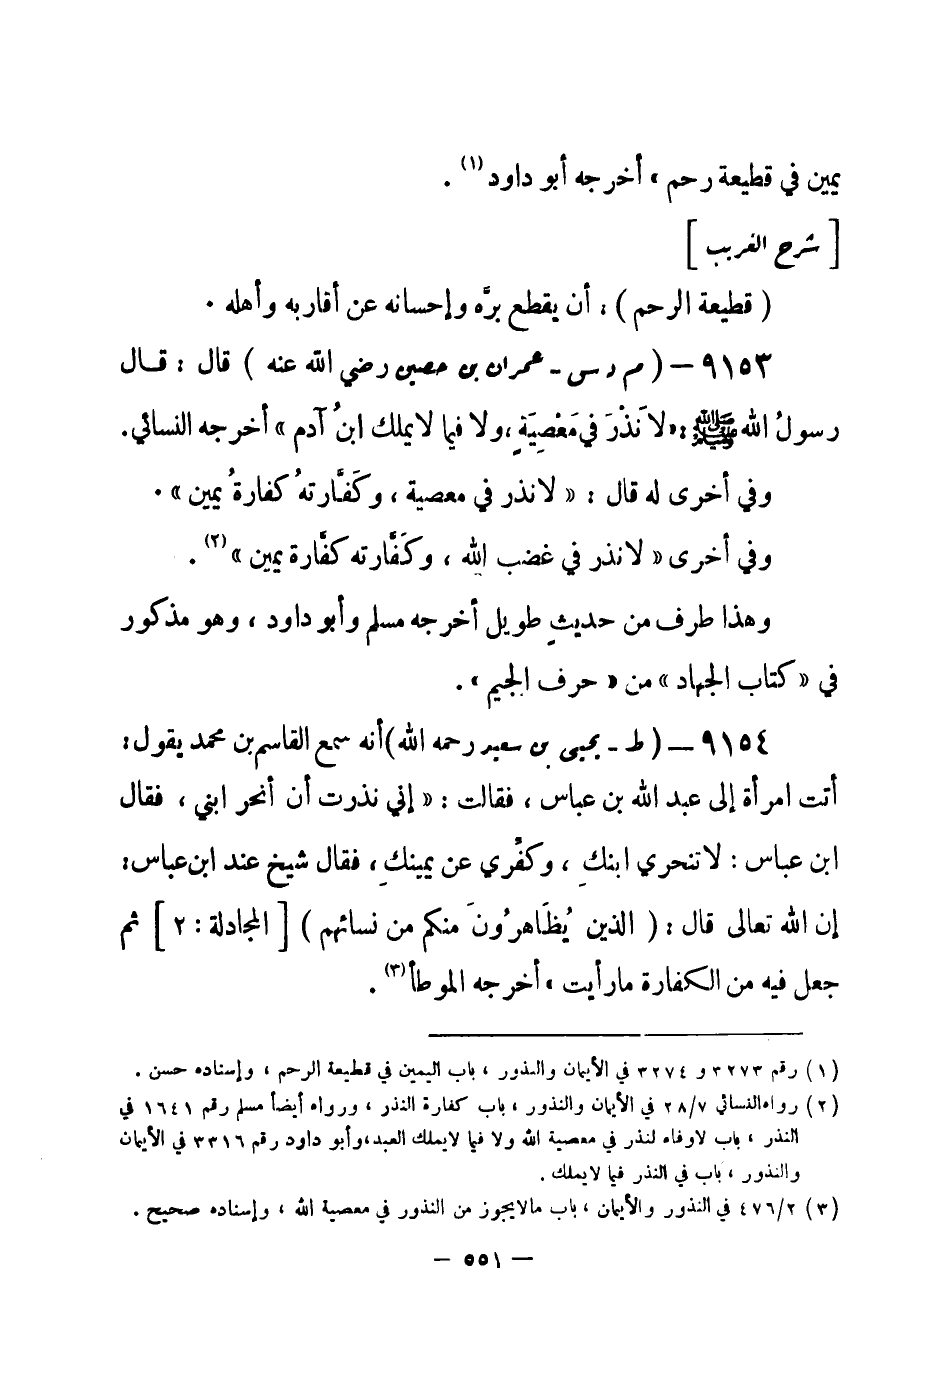 يمين في قطيعة رحم » أخرجه أبو داود (١) .
[ شرح الغريب ]
( قطيعة الرحم ) : أن يقطع برَّه وإحسانه عن أقاربه وأهله .
٩١٥٣ – ( م د س - عمران بن حصين رضي الله عنه ) قال : قال
رسولُ الله ﷺ : « لا نَذْرَ في مَعْصِيَةٍ ، ولا فيما لا يملك ابنُ آدم » أخرجه النسائي .
وفي أخرى له قال : « لا نذر في معصية ، وكَفَّارتهُ كفارةُ يمين » .
وفي أخرى « لا نذر في غضب الله ، وكَفَّارته كفَّارة يمين » (٢) .
وهذا طرف من حديثٍ طويل أخرجه مسلم وأبو داود ، وهو مذكور
في « كتاب الجهاد » من « حرف الجيم » .
٩١٥٤ – ( ط - يحيى بن سعيد رحمه الله ) أنه سمع القاسم بن محمد يقول :
أتت امرأة إلى عبد الله بن عباس ، فقالت : « إني نذرت أن أنحر ابني ، فقال
ابن عباس : لا تنحري ابنكِ ، وكفِّري عن يمينكِ ، فقال شيخ عند ابن عباس :
إن الله تعالى قال : ( الذين يُظَاهرُونَ منكم من نسائهم ) [ المجادلة : ٢ ] ثم
جعل فيه من الكفارة ما رأيت » أخرجه الموطأ (٣) .
(١) رقم ٣٢٧٣ و ٣٢٧٤ في الأيمان والنذور ، باب اليمين في قطيعة الرحم ، وإسناده حسن .
(٢) رواه النسائي ٢٨/٧ في الأيمان والنذور ، باب كفارة النذر ، ورواه أيضاً مسلم رقم ١٦٤١ في
النذر ، باب لا وفاء لنذر في معصية الله ولا فيما لا يملك العبد ، وأبو داود رقم ٣٣١٦ في الأيمان
والنذور ، باب في النذر فيما لا يملك .
(٣) ٤٧٦/٢ في النذور والأيمان ، باب ما لا يجوز من النذور في معصية الله ، وإسناده صحيح .
– ٥٥١ –